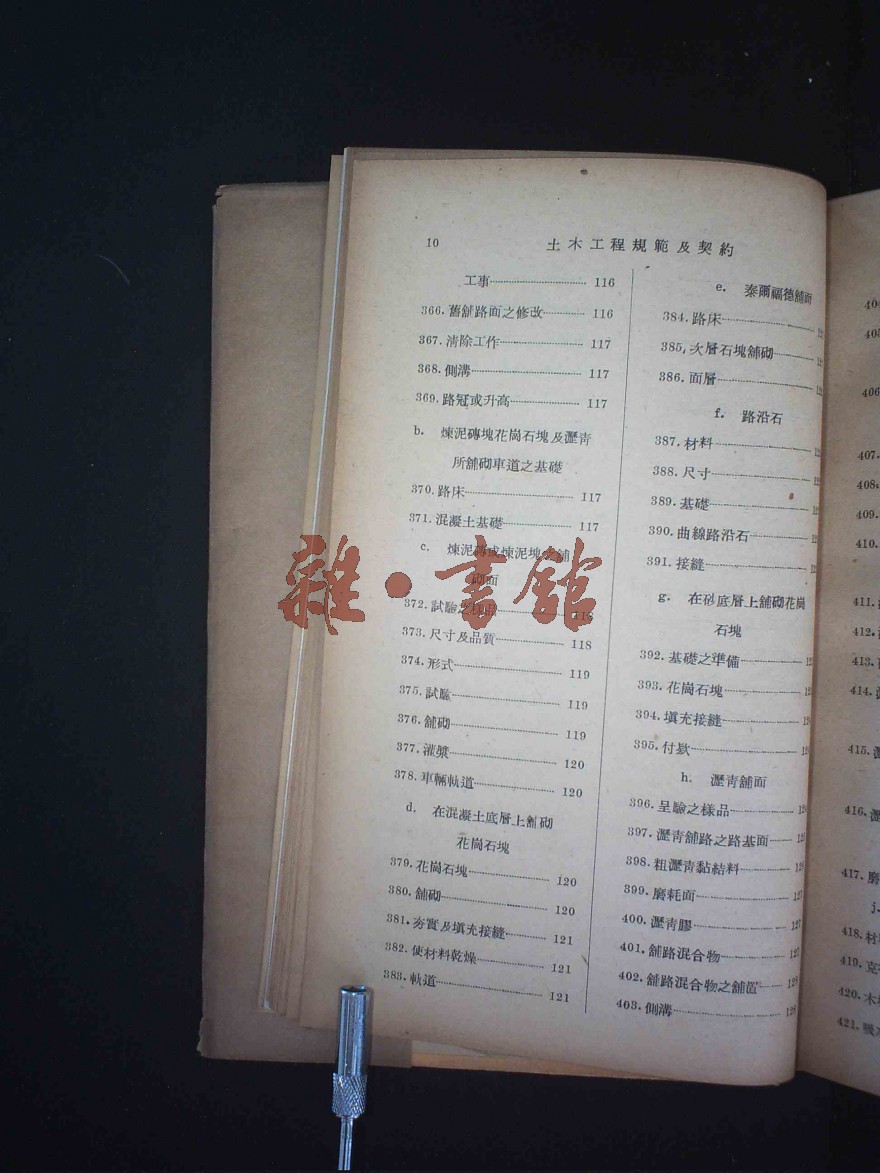 10
土木工程規範及契約
工事 116
366. 舊舖路面之修改 116
367. 清除工作 117
368. 側溝 117
369. 路冠或升高 117
b. 煉泥磚塊花崗石塊及瀝靑
所舖砌車道之基礎
370. 路床 117
371. 混凝土基礎 117
c. 煉泥磚或煉泥塊之舖
砌面
372. 試驗之樣品 118
373. 尺寸及品質 118
374. 形式 119
375. 試驗 119
376. 舖砌 119
377. 灌漿 120
378. 車輛軌道 120
d. 在混凝土底層上舖砌
花崗石塊
379. 花崗石塊 120
380. 舖砌 120
381. 夯實及填充接縫 121
382. 使材料乾燥 121
383. 軌道 121
e. 泰爾福德舖面
384. 路床
385. 次層石塊舖砌
386. 面層
f. 路沿石
387. 材料
388. 尺寸
389. 基礎
390. 曲線路沿石
391. 接縫
g. 在砂底層上舖砌花崗
石塊
392. 基礎之準備
393. 花崗石塊
394. 填充接縫
395. 付欵
h. 瀝靑舖面
396. 呈驗之樣品
397. 瀝靑舖路之路基面
398. 粗瀝靑黏結料
399. 磨耗面
400. 瀝靑膠
401. 舖路混合物
402. 舖路混合物之舖置
403. 側溝
406
407.
408.
409.
410.
411.
412.
413.
414.
415.
416.
417. 磨
j.
418. 材
419. 克
420. 木
421. 吸
雜·書館